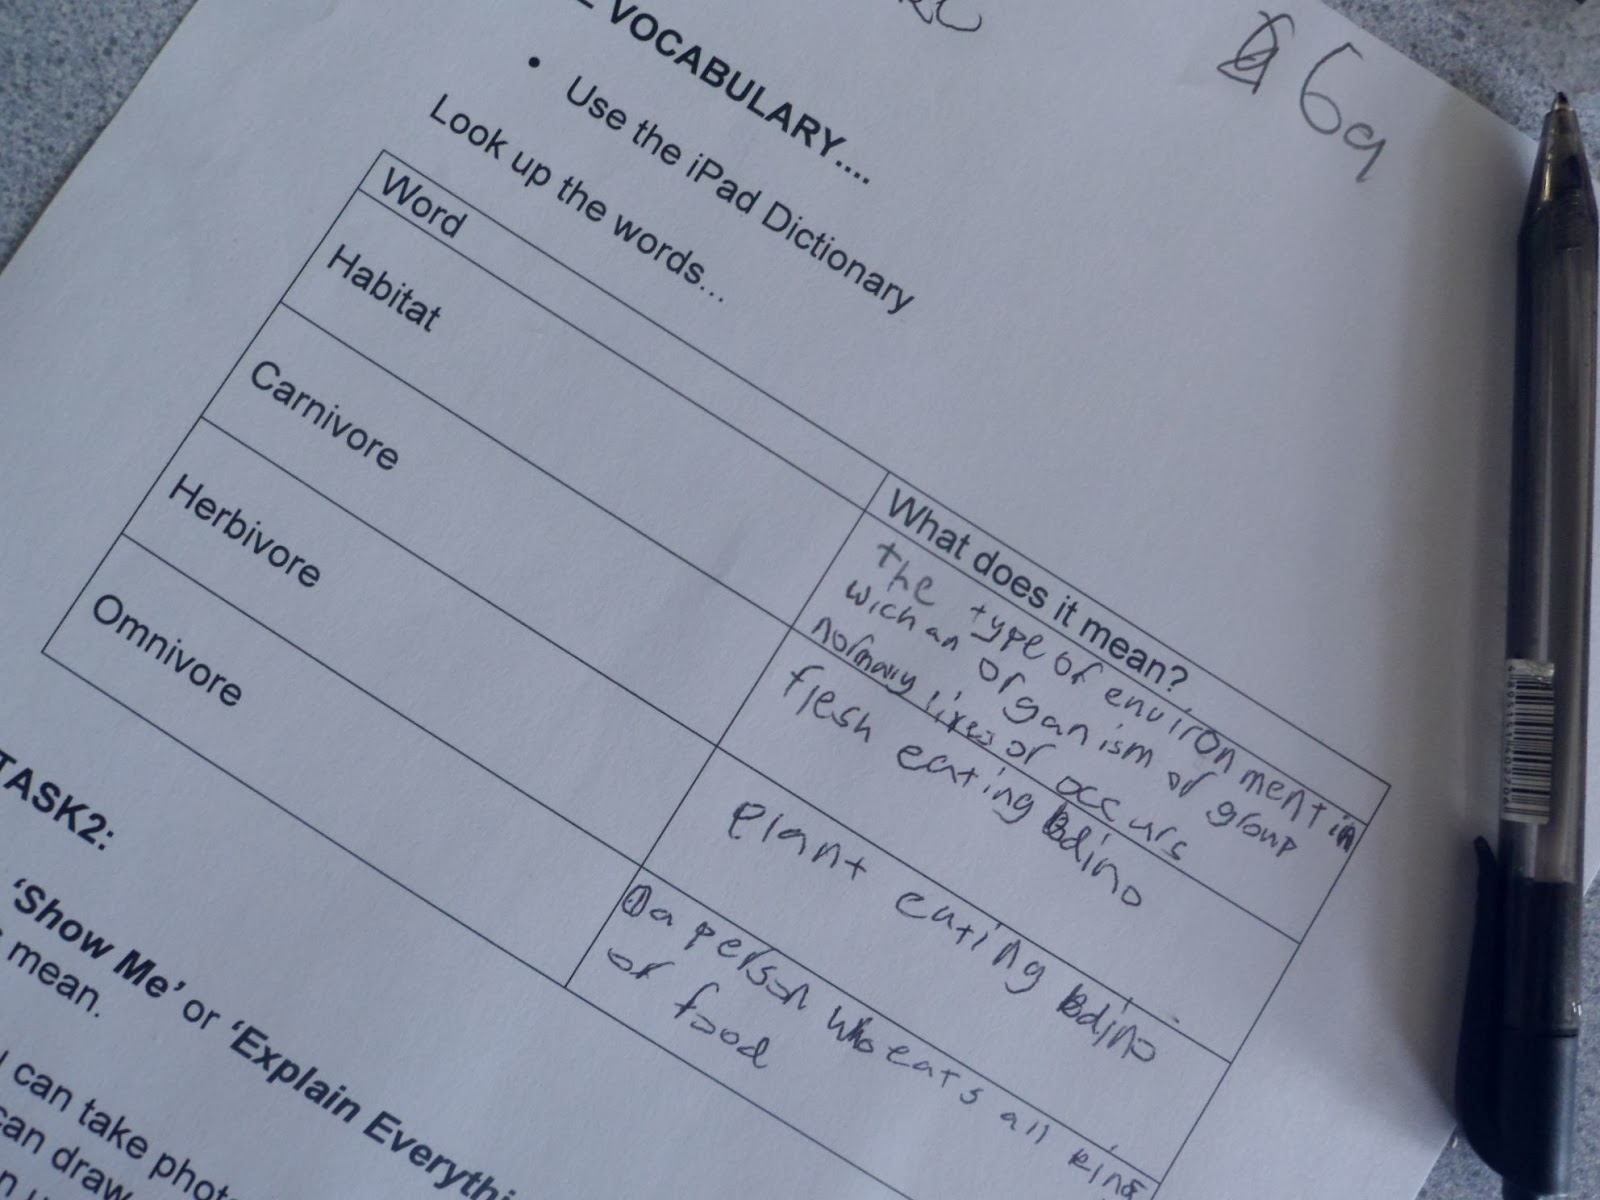 6a
VOCABULARY....
• Use the iPad Dictionary
Look up the words...
Word
What does it mean?
Habitat
the type of environment in
wich an organism or group
normaly lives or occurs
Carnivore
flesh eating dino
Herbivore
plant eating dino
Omnivore
a person who eats all kind
of food
TASK2:
'Show Me' or 'Explain Everythi
mean.
can take phot
can draw